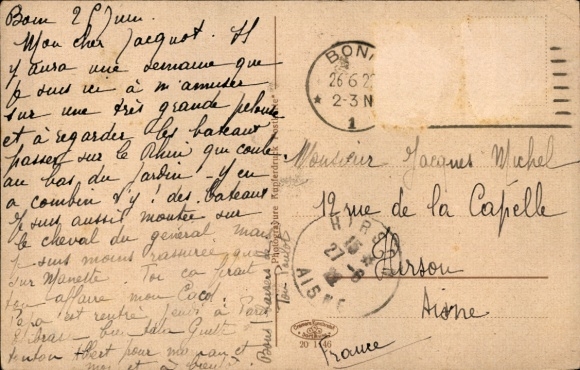 Bonn 26 Juin.
Mon cher Jacquot. Il
y aura une semaine que
je suis ici à m'amuser
sur une très grande pelouse
et à regarder les bateaux
passer sur le Rhin qui coule
au bas du jardin - Y en
a combin d'y! des bateaux
Je suis aussi montée sur
le cheval du général mais
je suis moins rassurée que
sur Manette Toi ça ferait
ton affaire mon Cacot
Papa est rentré jeudi à Paris
Embrasse bien
tonton Albert pour
et
Bons baisers de
Ton
Photogravure Kupferdruck Postkarte
BONN
26.6.2
2-3 N
* 1
Monsieur Jacques Michel
12 rue de la Capelle
Hirson
Aisne
France
HIRSON
15
27-6
AISNE
20 1146